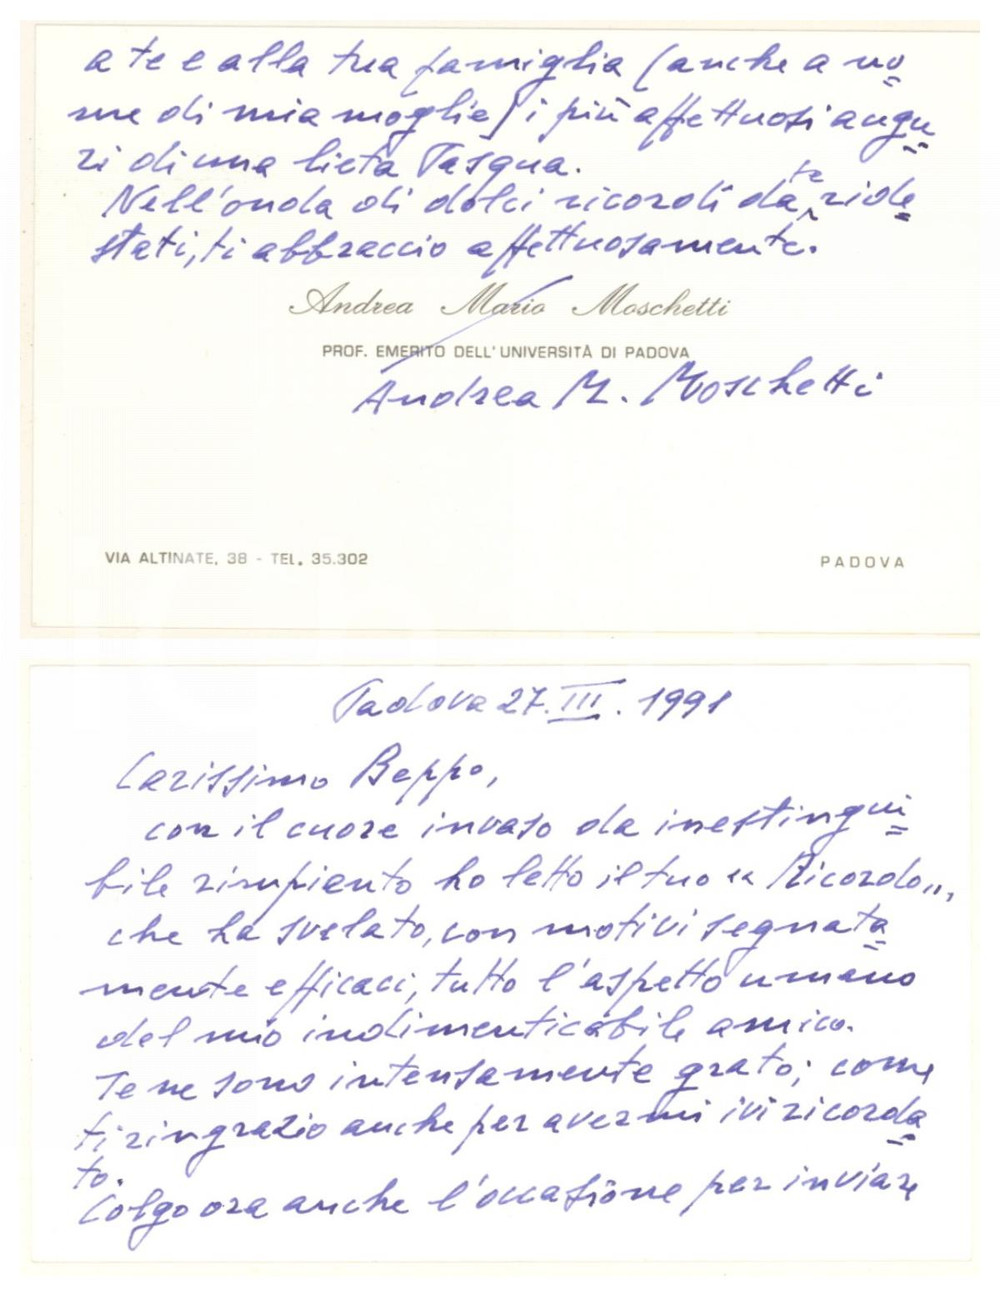 a te e alla tua famiglia (anche a no
me di mia moglie) i più affettuosi augu
ri di una lieta Pasqua.
Nell'onda di dolci ricordi da te ride
stati, ti abbraccio affettuosamente.
Andrea Mario Moschetti
PROF. EMERITO DELL'UNIVERSITÀ DI PADOVA
Andrea M. Moschetti
VIA ALTINATE, 38 - TEL. 35.302
PADOVA
Padova 27.III.1991
Carissimo Beppo,
con il cuore invaso da inestingui
bile rimpianto ho letto il tuo "Ricordo",
che ha svelato, con motivi segnata
mente efficaci, tutto l'aspetto umano
del mio indimenticabile amico.
Te ne sono intensamente grato; come
ti ringrazio anche per avermi ivi ricorda
to.
Colgo ora anche l'occasione per inviare